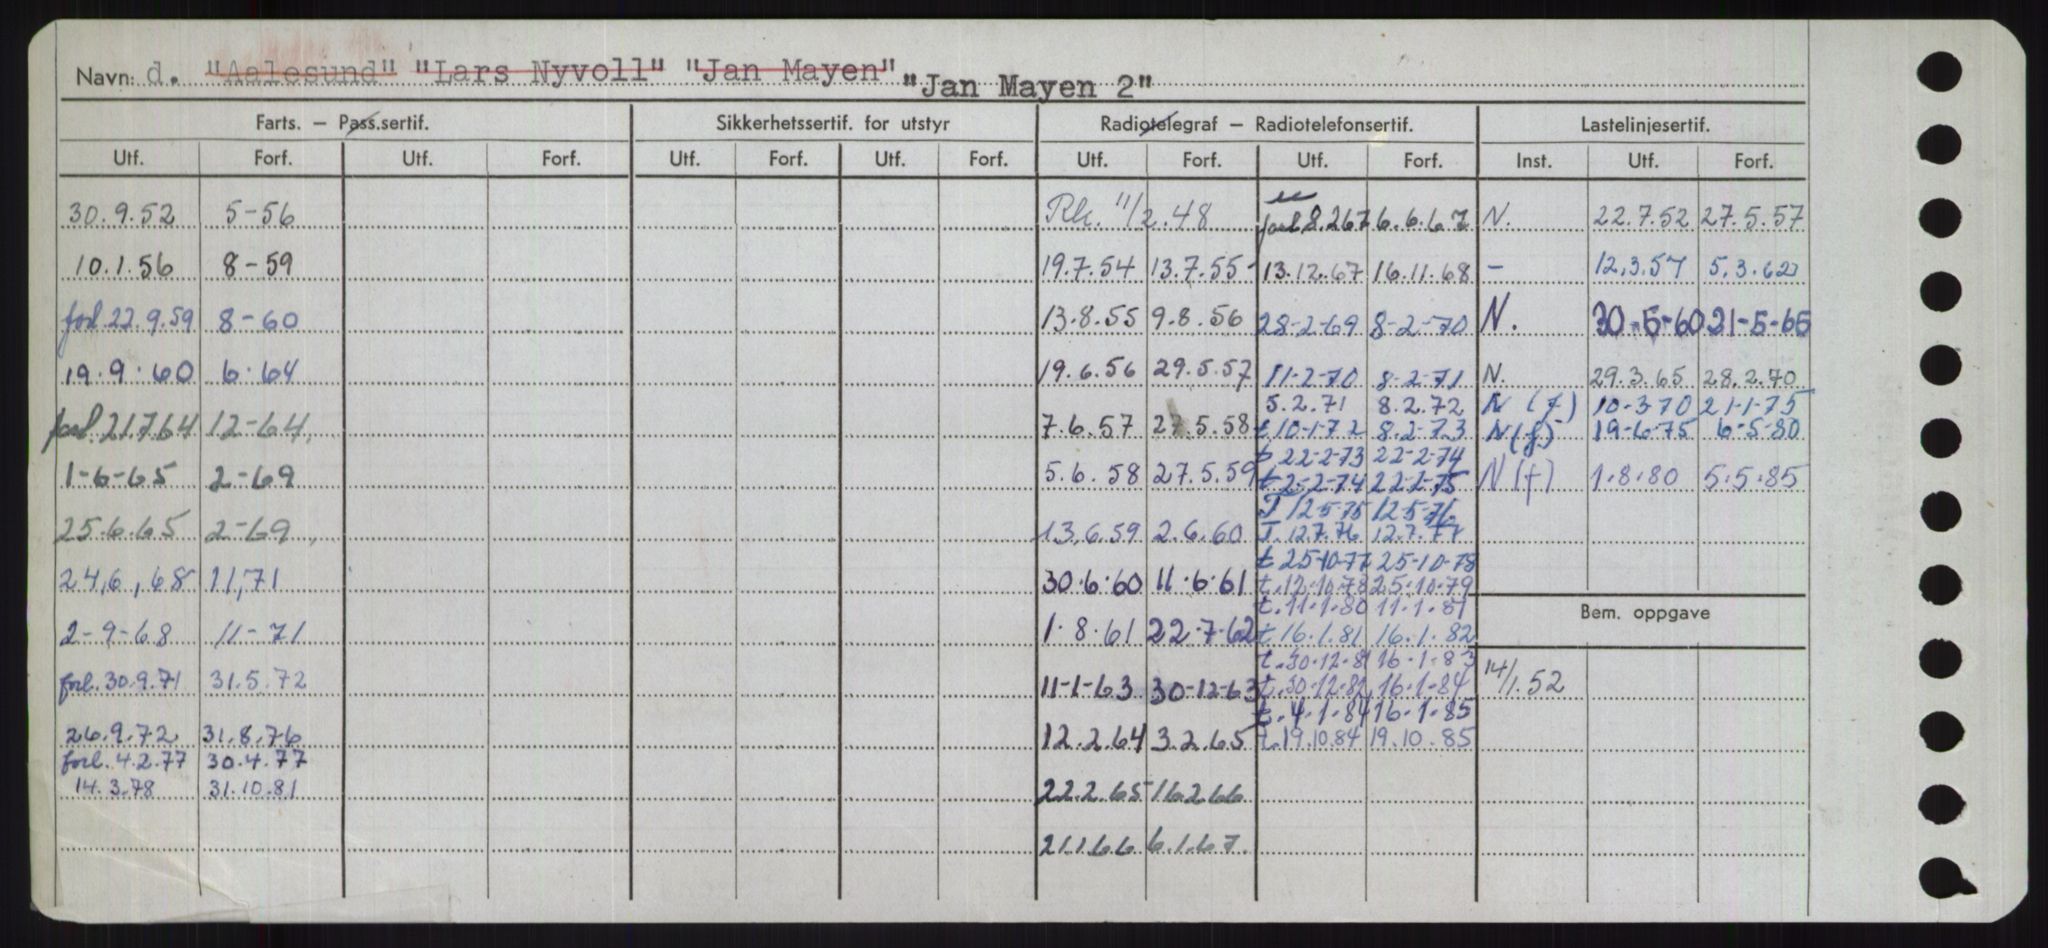 Navn: d. "Aalesund" "Lars Nyvoll" "Jan Mayen" "Jan Mayen 2"
Farts. – Pass.sertif. Sikkerhetssertif. for utstyr Radiotelegraf – Radiotelefonsertif. Lastelinjesertif.
Utf. Forf. Utf. Forf. Utf. Forf. Utf. Forf. Utf. Forf. Utf. Forf. Inst. Utf. Forf.
30.9.52 5-56 Rk. 11/2.48 8.2.67 6.6.67 N. 22.7.52 27.5.57
10.1.56 8-59 19.7.54 13.7.55 13.12.67 16.11.68 – 12.3.57 5.3.62
forl. 22.9.59 8-60 13.8.55 9.8.56 28-2-69 8-2-70 N. 30-5-60 21-5-65
19.9.60 6.64 19.6.56 29.5.57 11-2-70 8-2-71 N. 29.3.65 28.2.70
5.2.71 8.2.72 N (f) 10-3-70 21-1-75
forl. 21.7.64 12-64. 7.6.57 27.5.58 t. 10-1-72 8.2-73 N(f) 19-6-75 6-5-80
t. 22-2-73 22-2-74
1-6-65 2-69 5.6.58 27.5.59 t. 2-2-74 22-2-75 N(f) 1.8.80 5.5.85
T 12-5-75 12-5-76
25.6.65 2-69 13.6.59 2.6.60 T. 12.7.76 12.7.77
t 25-10-77 25-10-78
24.6.68 11.71 30.6.60 11.6.61 t. 12.10.78 25.10.79
t. 11.1.80 11.1.81
Bem. oppgave
2-9-68 11-71 1.8.61 22.7.62 t. 16.1.81 16.1.82
t. 30.12.81 16.1.83
forl. 30.9.71 31.5.72 11-1-63 30-12-63 t. 30.12.82 16.1.84 14/1.52
t. 4.1.84 16.1.85
26.9.72 31.8.76 12.2.64 3.2.65 t. 19.10.84 19.10.85
forl. 4.2.77 30.4.77
14.3.78 31.10.81 22.2.65 16.2.66
21.1.66 6.1.67.